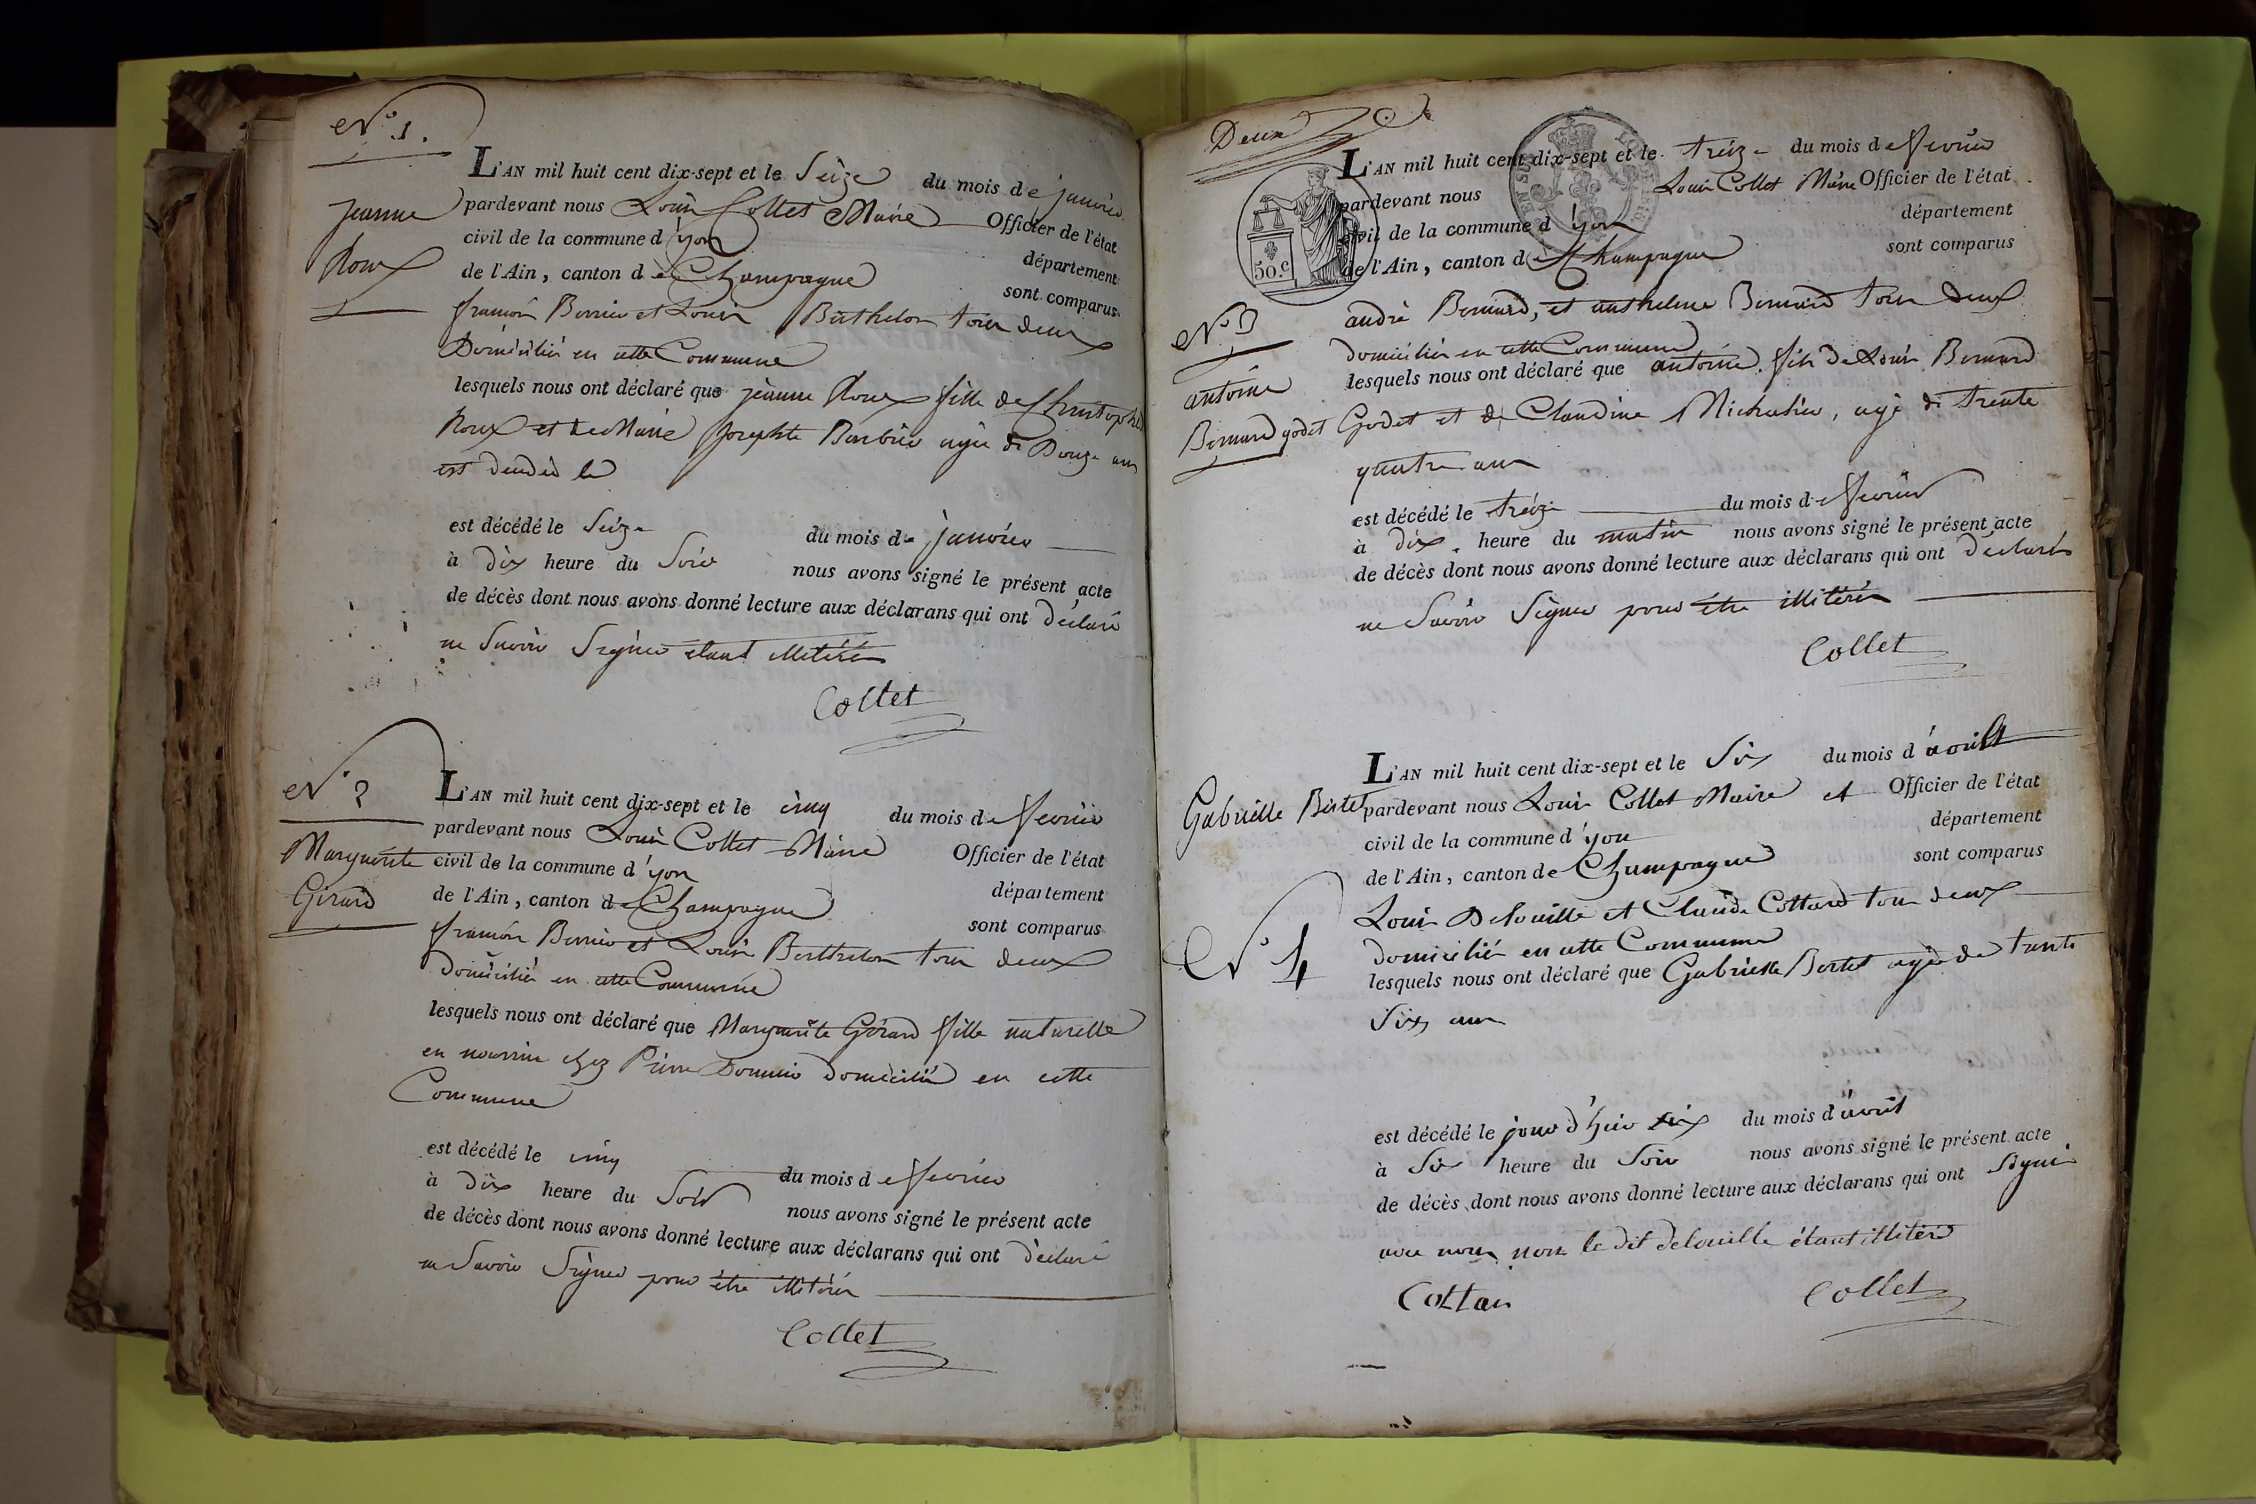 N.° 1.
Jeanne
Roux
L'AN mil huit cent dix-sept et le Seize du mois de janvier
pardevant nous Louis Collet Maire Officier de l'état
civil de la commune d'yon département
de l'Ain, canton de Champagne sont comparus
françois Bernier et Louis Berthelon tous deux
Domiciliés en cette Commune
lesquels nous ont déclaré que jeanne Roux fille de Christophe
Roux et de Marie josephte Barbier agée de Douze ans
est décédée le
est décédé le Seize du mois de janvier
à dix heure du Soir nous avons signé le présent acte
de décès dont nous avons donné lecture aux déclarans qui ont déclaré
ne Savoir Signer étant illitérés
Collet
N.° 2
Marguerite
Girard
L'AN mil huit cent dix-sept et le cinq du mois de fevrier
pardevant nous Louis Collet Maire Officier de l'état
civil de la commune d'yon département
de l'Ain, canton de Champagne sont comparus
françois Bernier et Louis Berthelon tous deux
domiciliés en cette Commune
lesquels nous ont déclaré que Marguerite Girard fille naturelle
en nourrice chez Pierre domicilié en cette
Commune
est décédé le cinq du mois de fevrier
à dix heure du Soir nous avons signé le présent acte
de décès dont nous avons donné lecture aux déclarans qui ont déclaré
ne Savoir Signer pour être illitérés
Collet
Deux
50.c
L'AN mil huit cent dix-sept et le treize du mois de fevrier
pardevant nous Louis Collet Maire Officier de l'état
civil de la commune d'yon département
de l'Ain, canton de Champagne sont comparus
N.° 3
antoine
Bernard godet
andré Bernard, et anthelme Bernard tous deux
domiciliés en cette Commune
lesquels nous ont déclaré que antoine fils de Louis Bernard
Godet et de Claudine, agé de trente
quatre ans
est décédé le treize du mois de fevrier
à dix heure du matin nous avons signé le présent acte
de décès dont nous avons donné lecture aux déclarans qui ont déclarés
ne Savoir Signer pour être illitérés
Collet
Gabrielle Bertet
N.° 4
L'AN mil huit cent dix-sept et le Six du mois d'avril
pardevant nous Louis Collet Maire et Officier de l'état
civil de la commune d'yon département
de l'Ain, canton de Champagne sont comparus
Louis Delouille et Claude Cottard tous deux
domiciliés en cette Commune
lesquels nous ont déclaré que Gabrielle Bertet agée de trante
Six ans
est décédé le jour d'hier six du mois d'avril
à Six heure du Soir nous avons signé le présent acte
de décès dont nous avons donné lecture aux déclarans qui ont Signé
avec nous non le dit delouille étant illitéré
Cottar
Collet